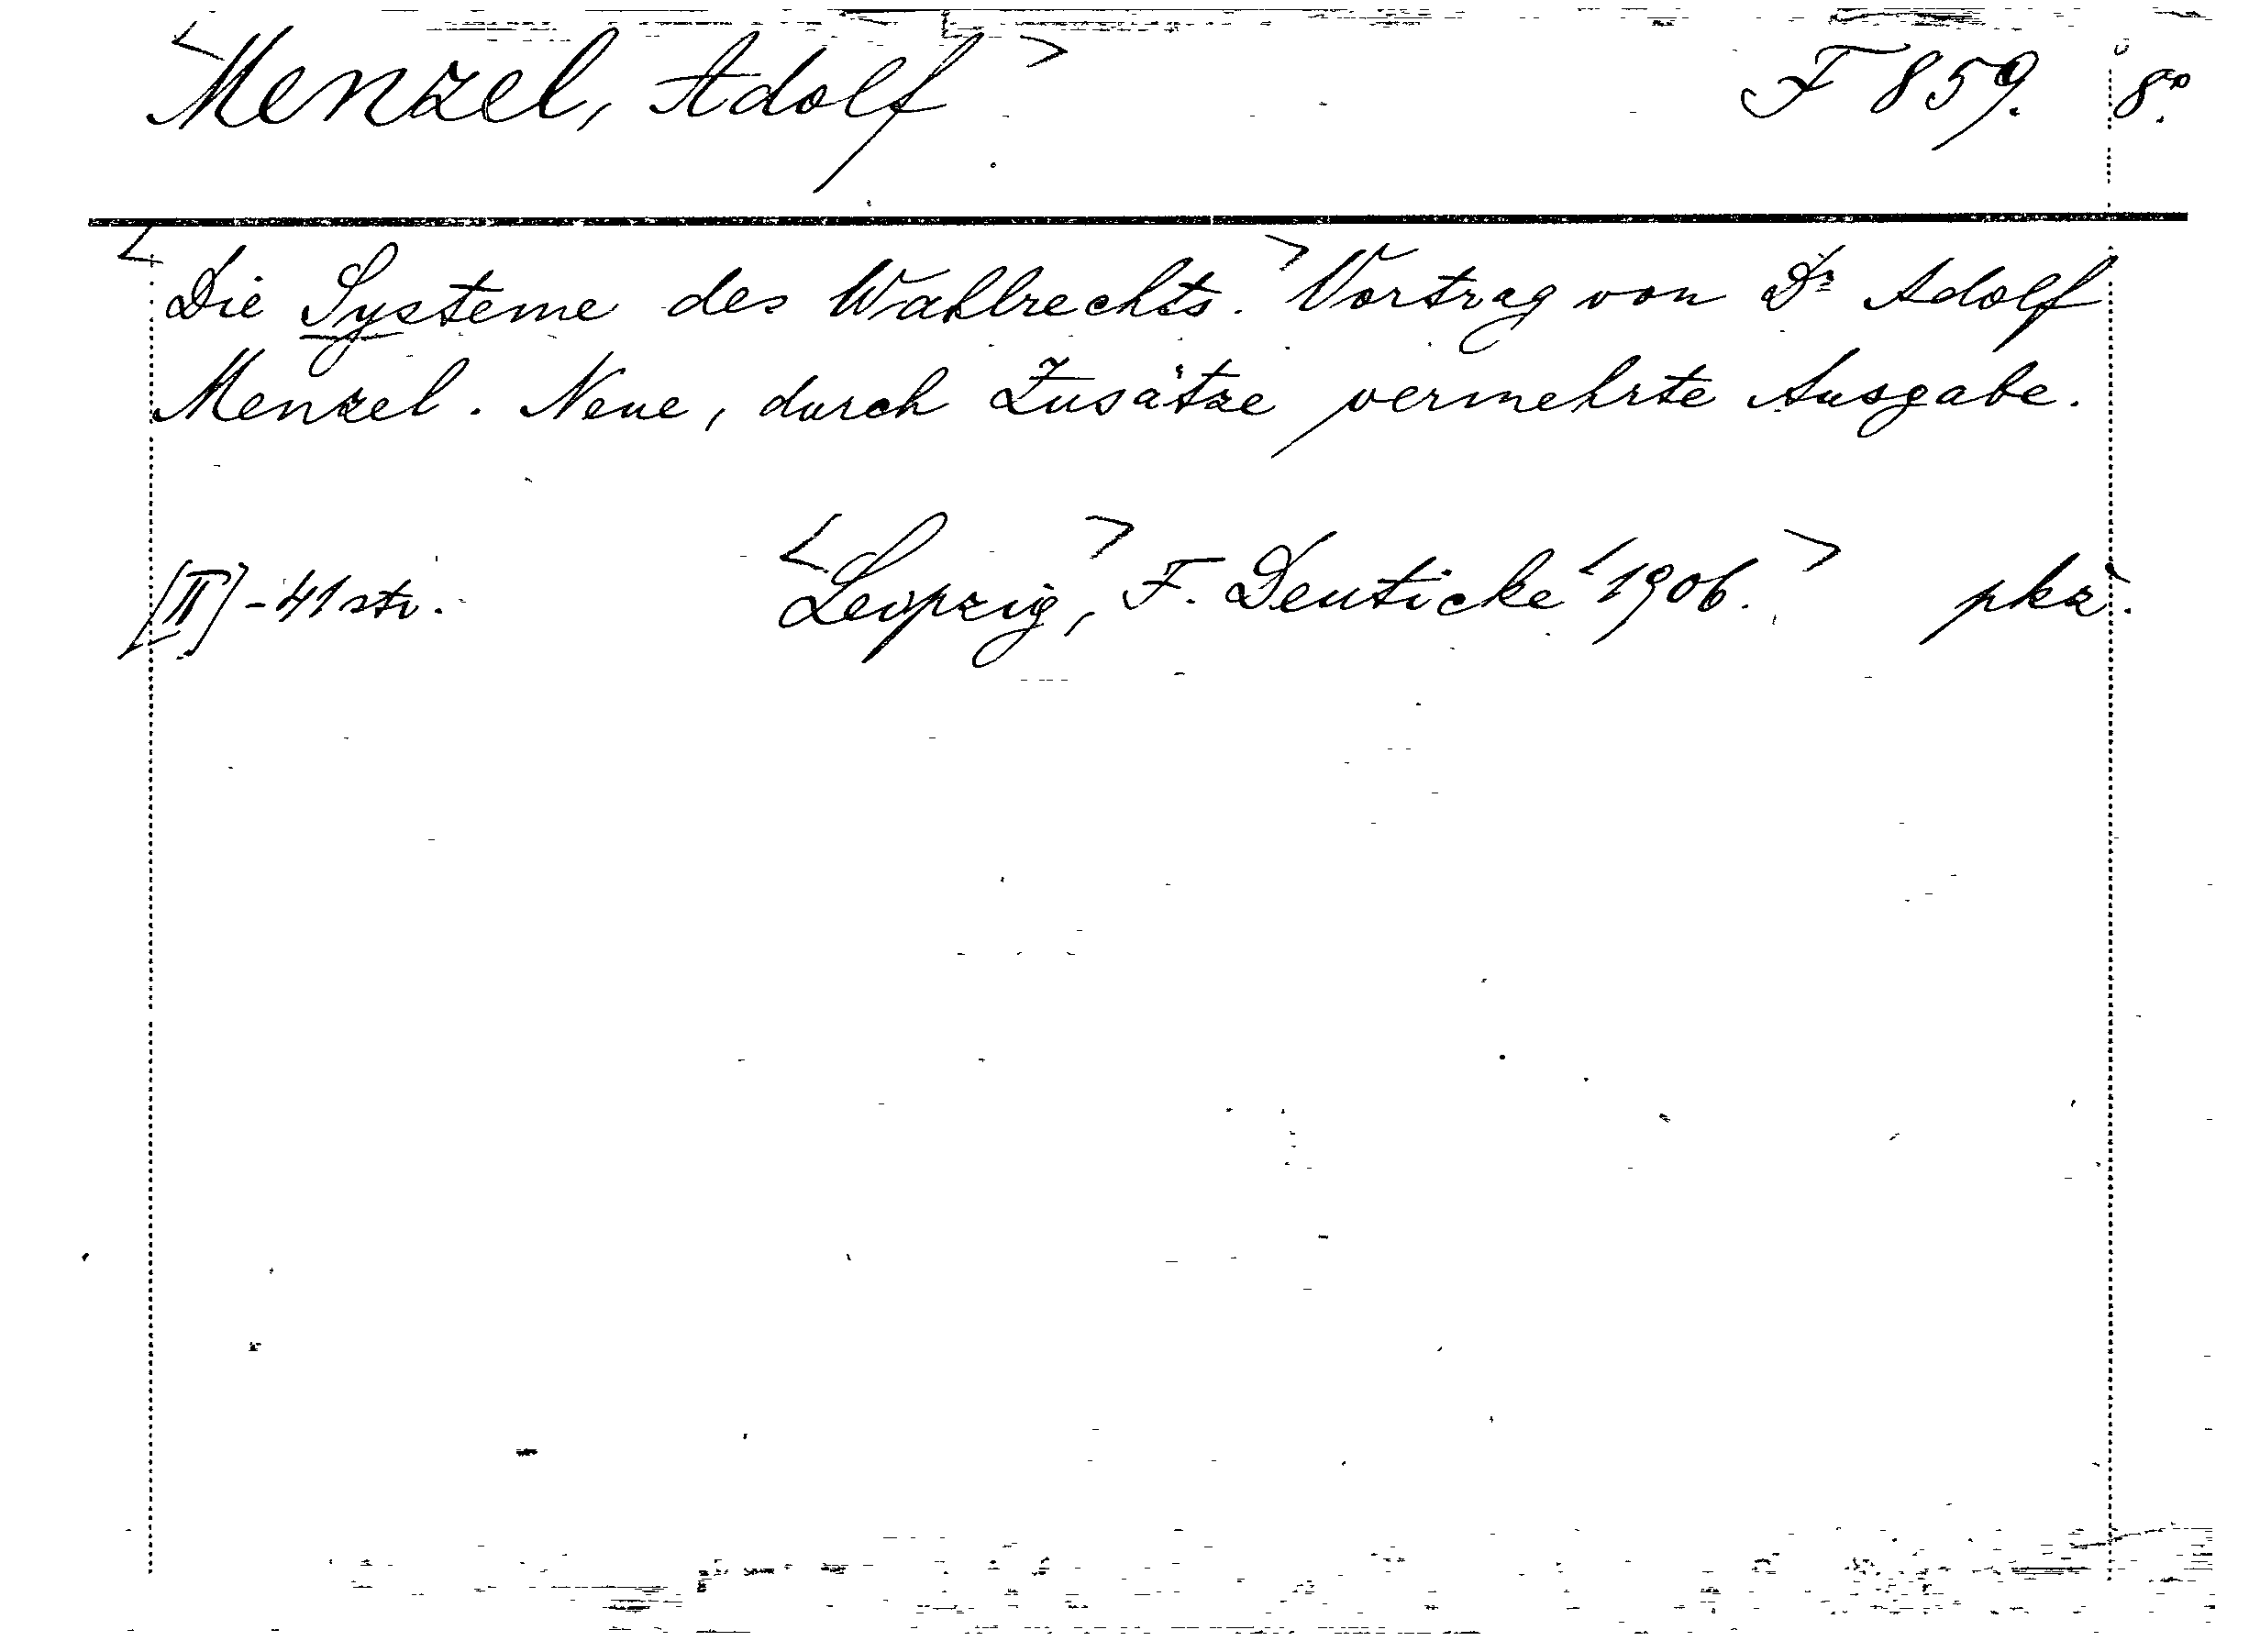 <Menzel, Adolf> F 859. 8°.
<Die Systeme des Wahlrechts.> Vortrag von Dr Adolf
Menzel. Neue, durch Zusätze vermehrte Ausgabe.
[II]-41 str. <Leipzig,> F. Deuticke <1906.> pkż.